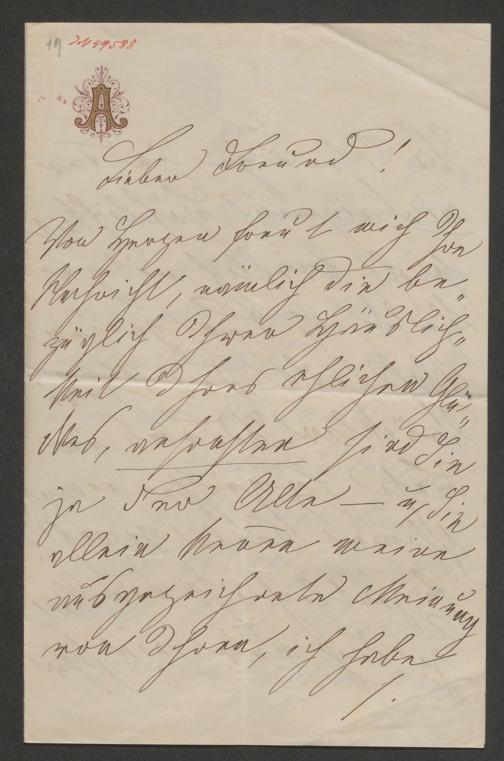 19 IN 49588
A
Lieber Freund!
Von Herzen freut mich Ihre
Nachricht, nämlich die be„
züglich Ihrer Häuslich„
keit Ihres ehlichen Glü„
ckes, unsrerseits sind Sie
ja der Alte — u. Sie
allein kennen meine
ausgezeichnete Meinung
von Ihnen, ich habe
/.